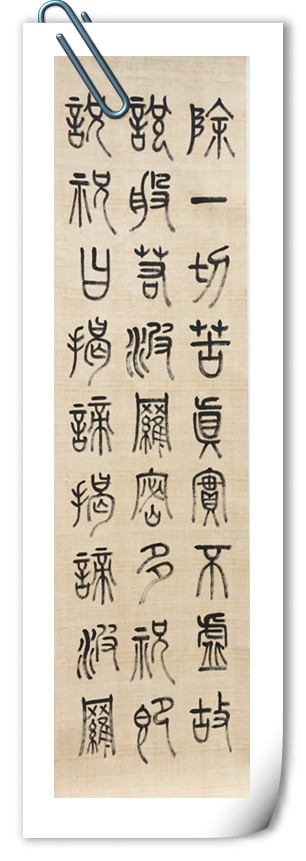 除一切苦真實不虛故
說般若波羅密多祝即
說祝曰揭諦揭諦波羅